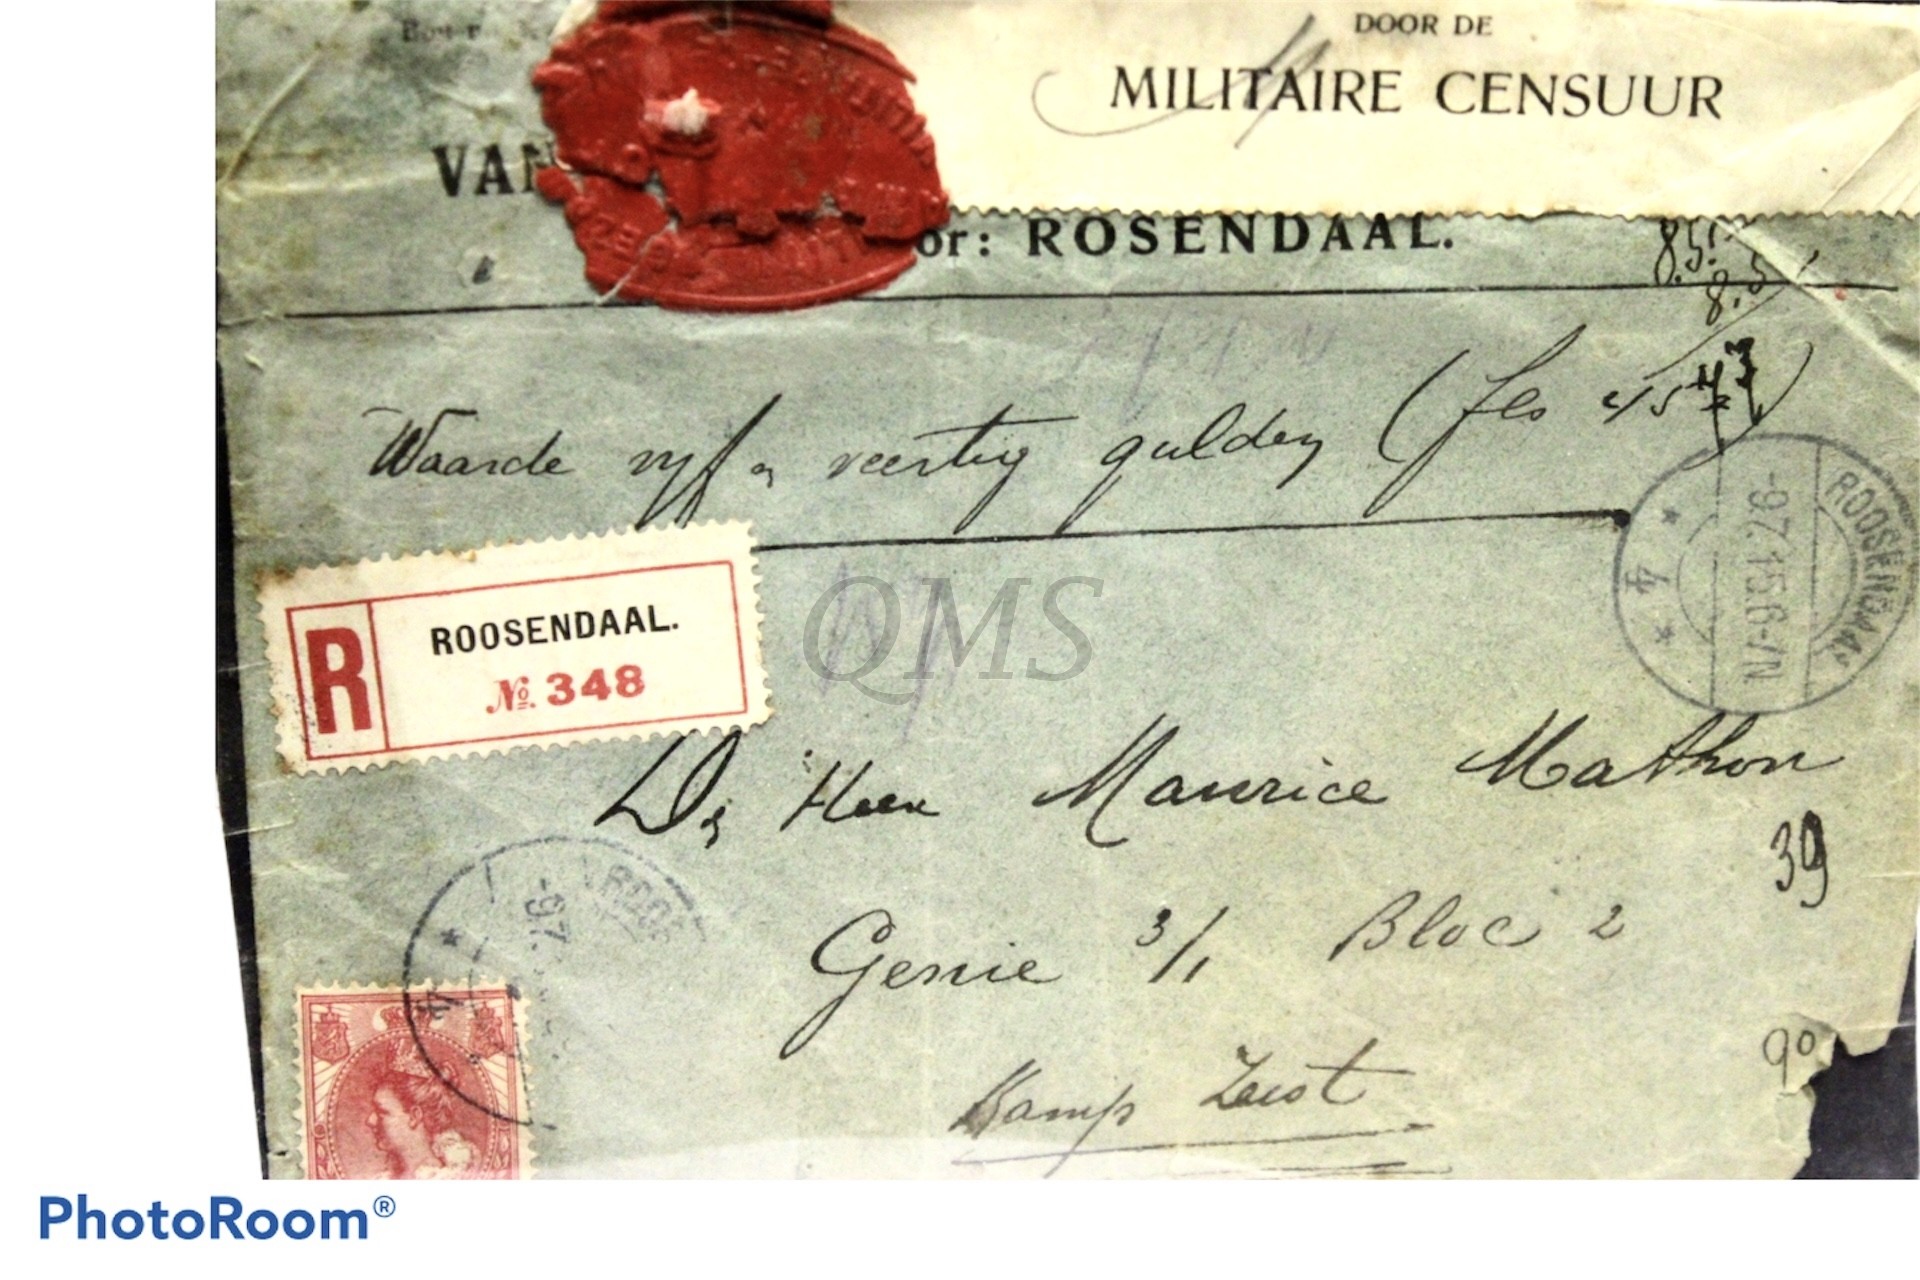 DOOR DE
MILITAIRE CENSUUR
VAN
or: ROSENDAAL.
8.5
8.5
Waarde vyf en veertig gulden (fls 45
R ROOSENDAAL.
№ 348
ROOSENDAAL
-9.7.15.6-7N
4
QMS
Den Heer Maurice Mathon
39
Genie 3/1 Bloc 2
ROOS
-9.7.
4
90
Kamp Zeist
PhotoRoom®